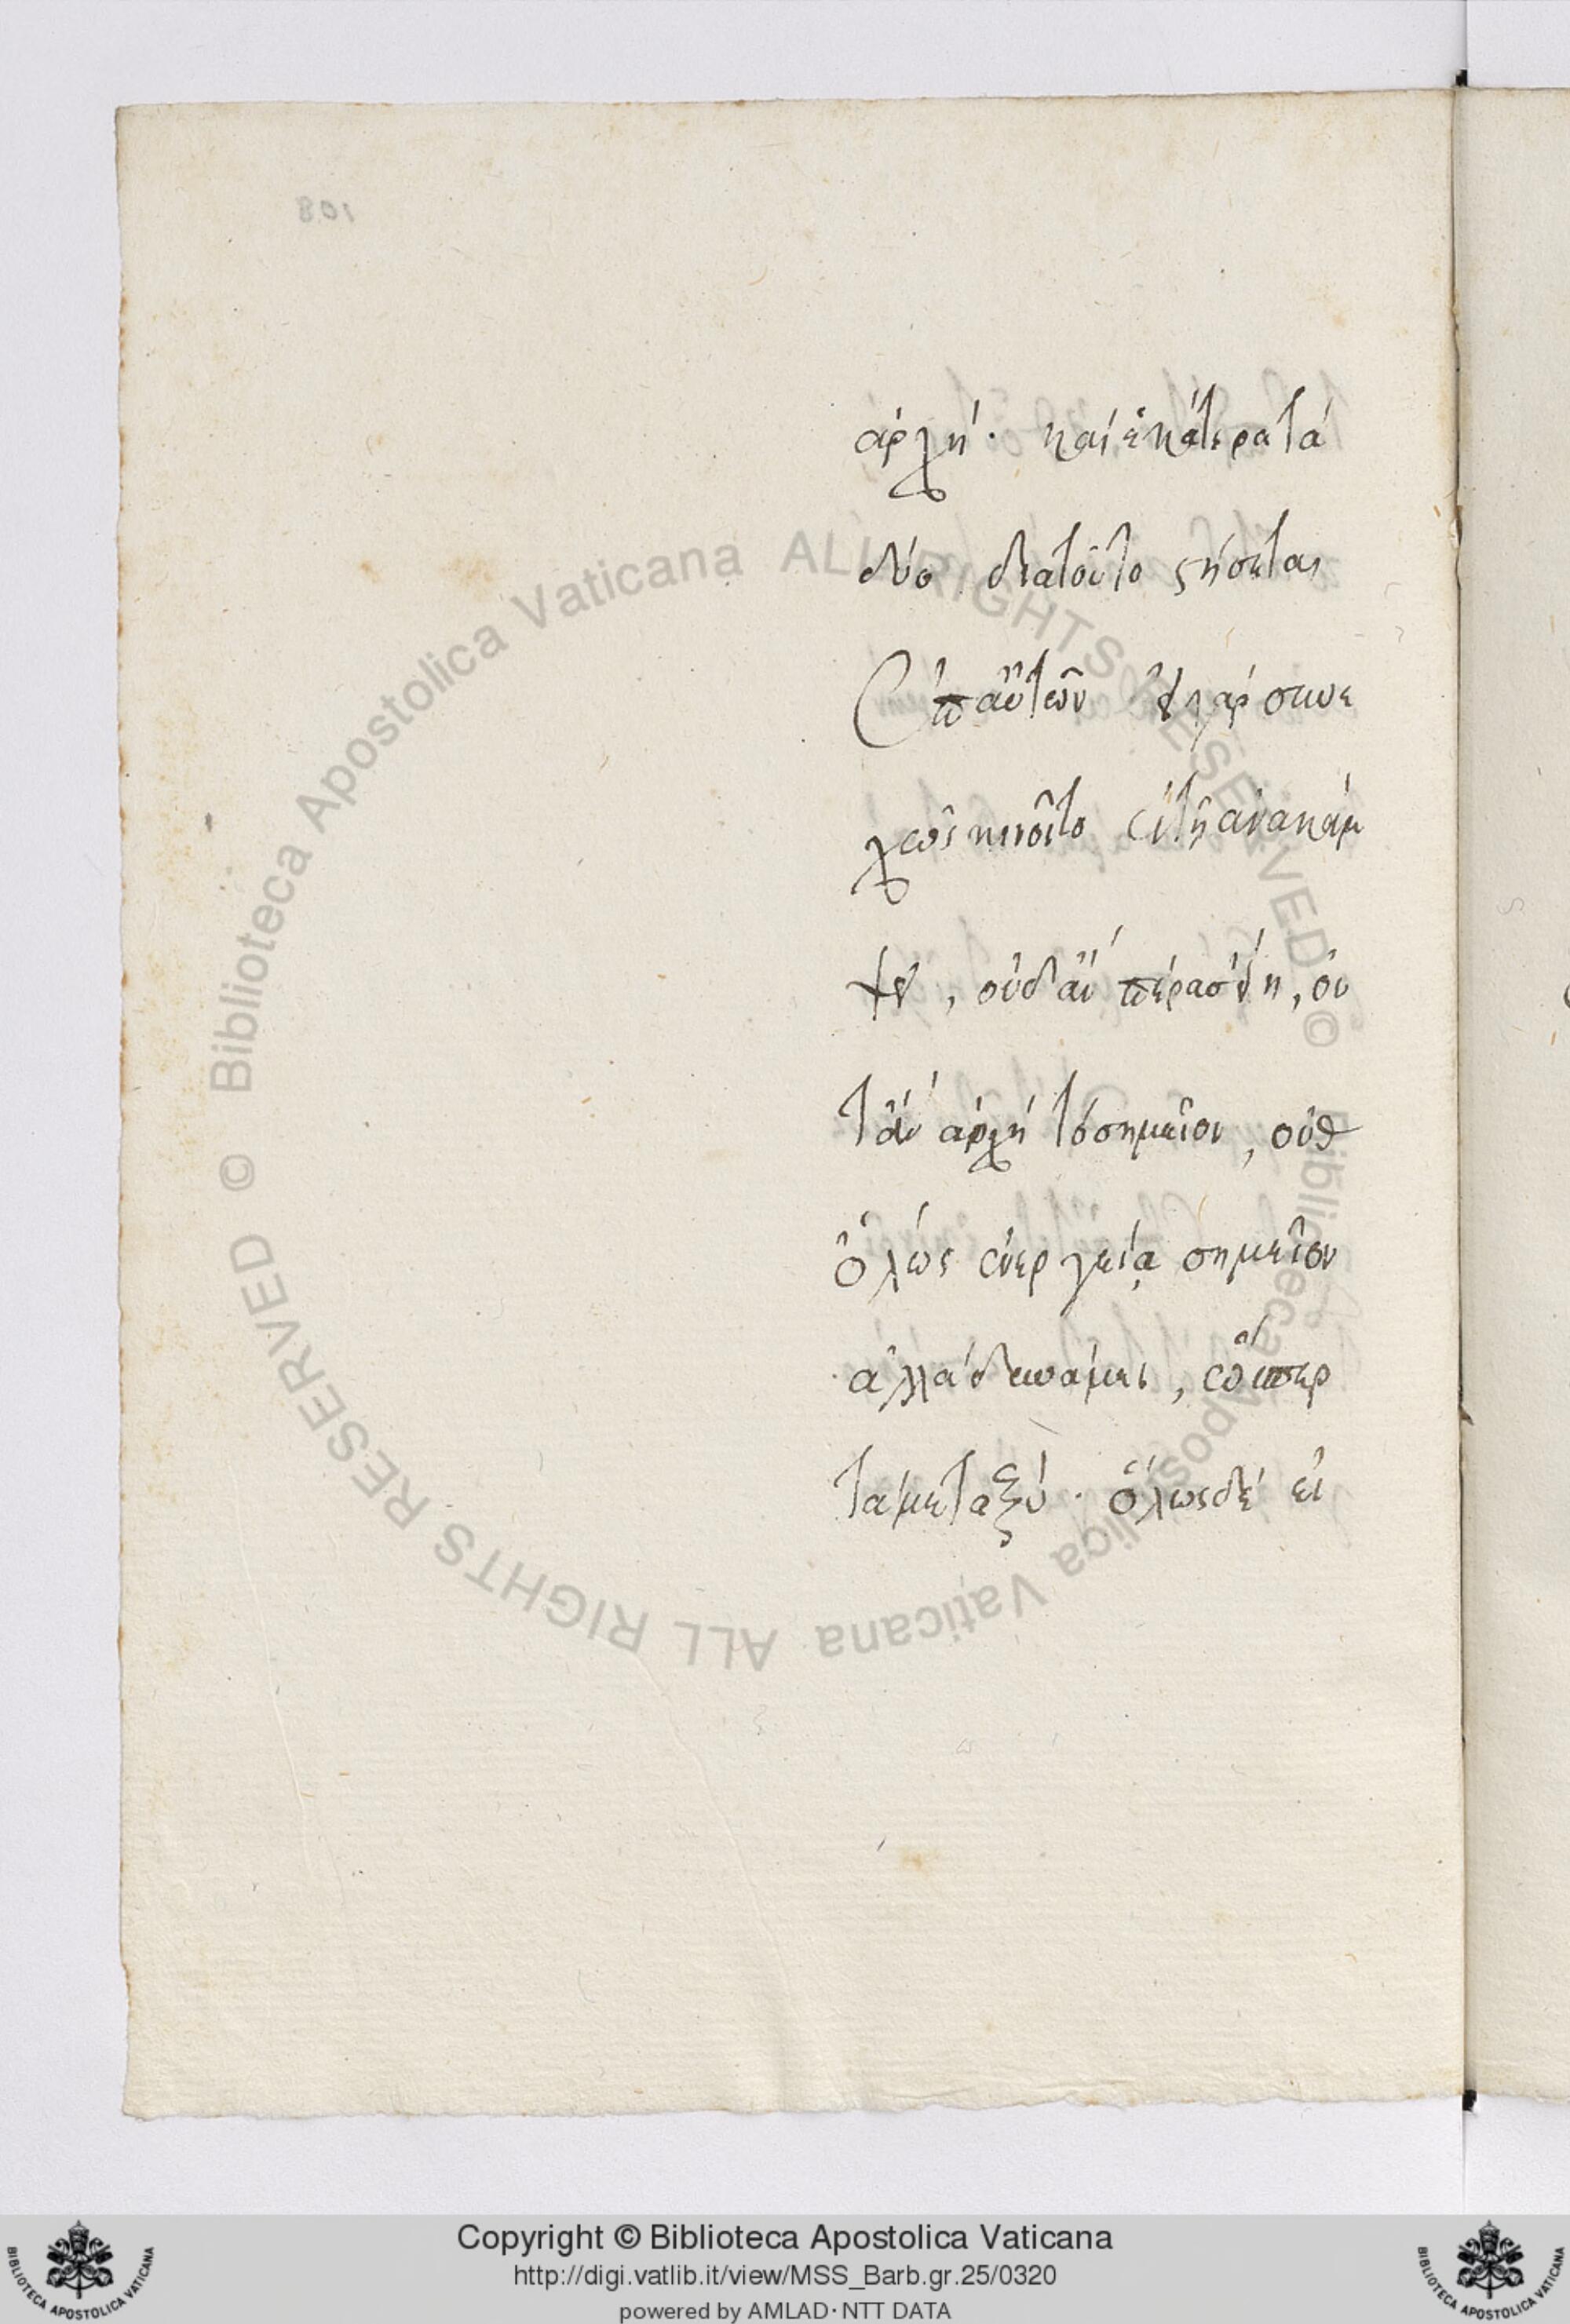 108
ἀρχή· καὶ ἑκάτερα τὰ
δύο διατοῦτο στήσεται
ἐπ' αὐτῶν· εἰ γὰρ συνε
χῶς κινοῖτο ἐν τῇ ἀνακάμ
ψει, οὐδ' ἂν πέρας εἴη, οὔ
τ' ἂν ἀρχὴ τὸ σημεῖον, οὔθ
ὅλως ἐνεργείᾳ σημεῖον
ἀλλὰ δυνάμει, ὥσπερ
τὰ μεταξύ· ὅλως δὲ εἰ
© Biblioteca Apostolica Vaticana ALL RIGHTS RESERVED
© Biblioteca Apostolica Vaticana ALL RIGHTS RESERVED
Copyright © Biblioteca Apostolica Vaticana
http://digi.vatlib.it/view/MSS_Barb.gr.25/0320
powered by AMLAD·NTT DATA
BIBLIOTECA APOSTOLICA VATICANA
BIBLIOTECA APOSTOLICA VATICANA